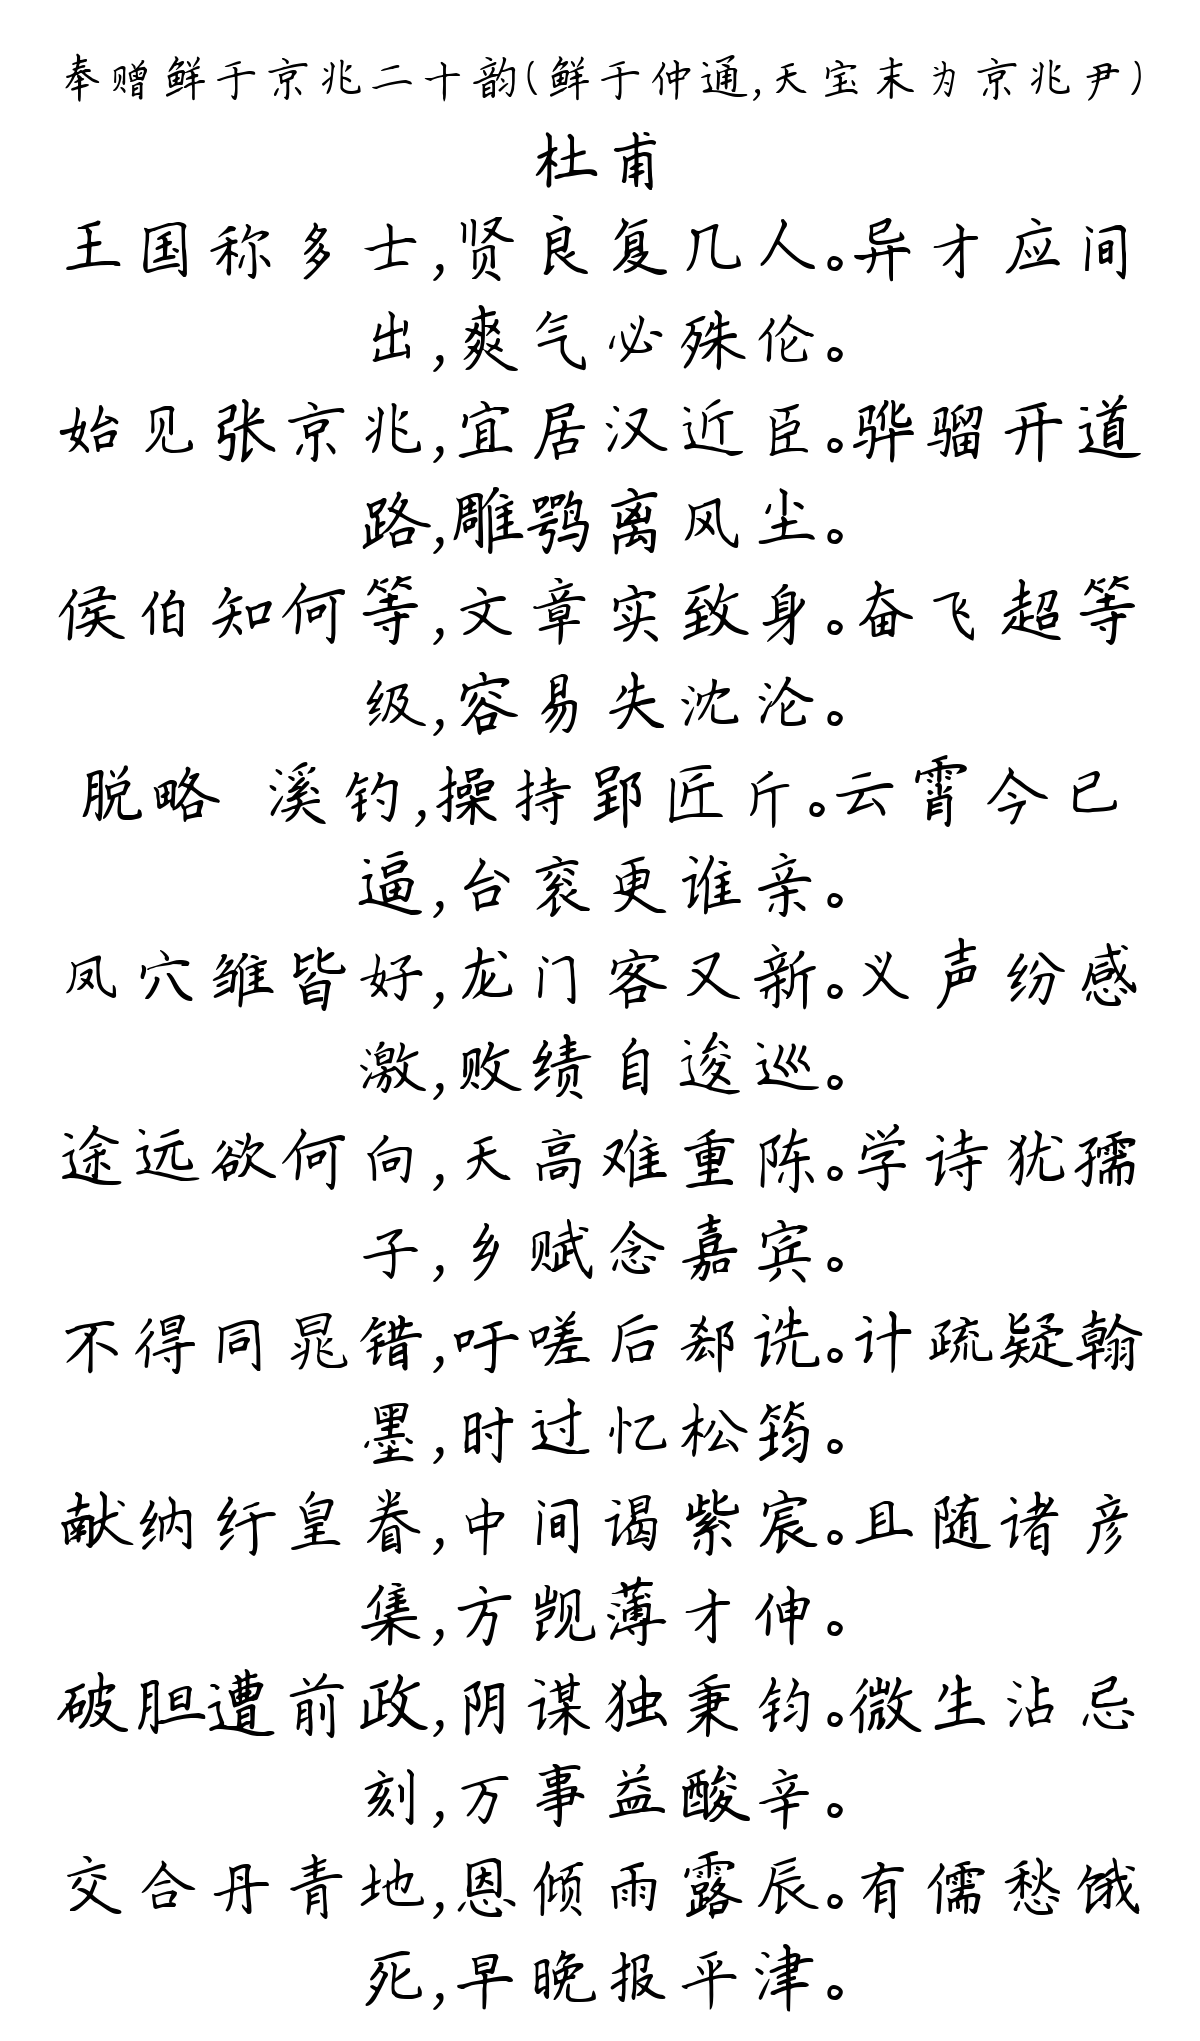 奉赠鲜于京兆二十韵(鲜于仲通,天宝末为京兆尹)
杜甫
王国称多士,贤良复几人。异才应间
出,爽气必殊伦。
始见张京兆,宜居汉近臣。骅骝开道
路,雕鹗离风尘。
侯伯知何等,文章实致身。奋飞超等
级,容易失沈沦。
脱略 溪钓,操持郢匠斤。云霄今已
逼,台衮更谁亲。
凤穴雏皆好,龙门客又新。义声纷感
激,败绩自逡巡。
途远欲何向,天高难重陈。学诗犹孺
子,乡赋念嘉宾。
不得同晁错,吁嗟后郄诜。计疏疑翰
墨,时过忆松筠。
献纳纡皇眷,中间谒紫宸。且随诸彦
集,方觊薄才伸。
破胆遭前政,阴谋独秉钧。微生沾忌
刻,万事益酸辛。
交合丹青地,恩倾雨露辰。有儒愁饿
死,早晚报平津。